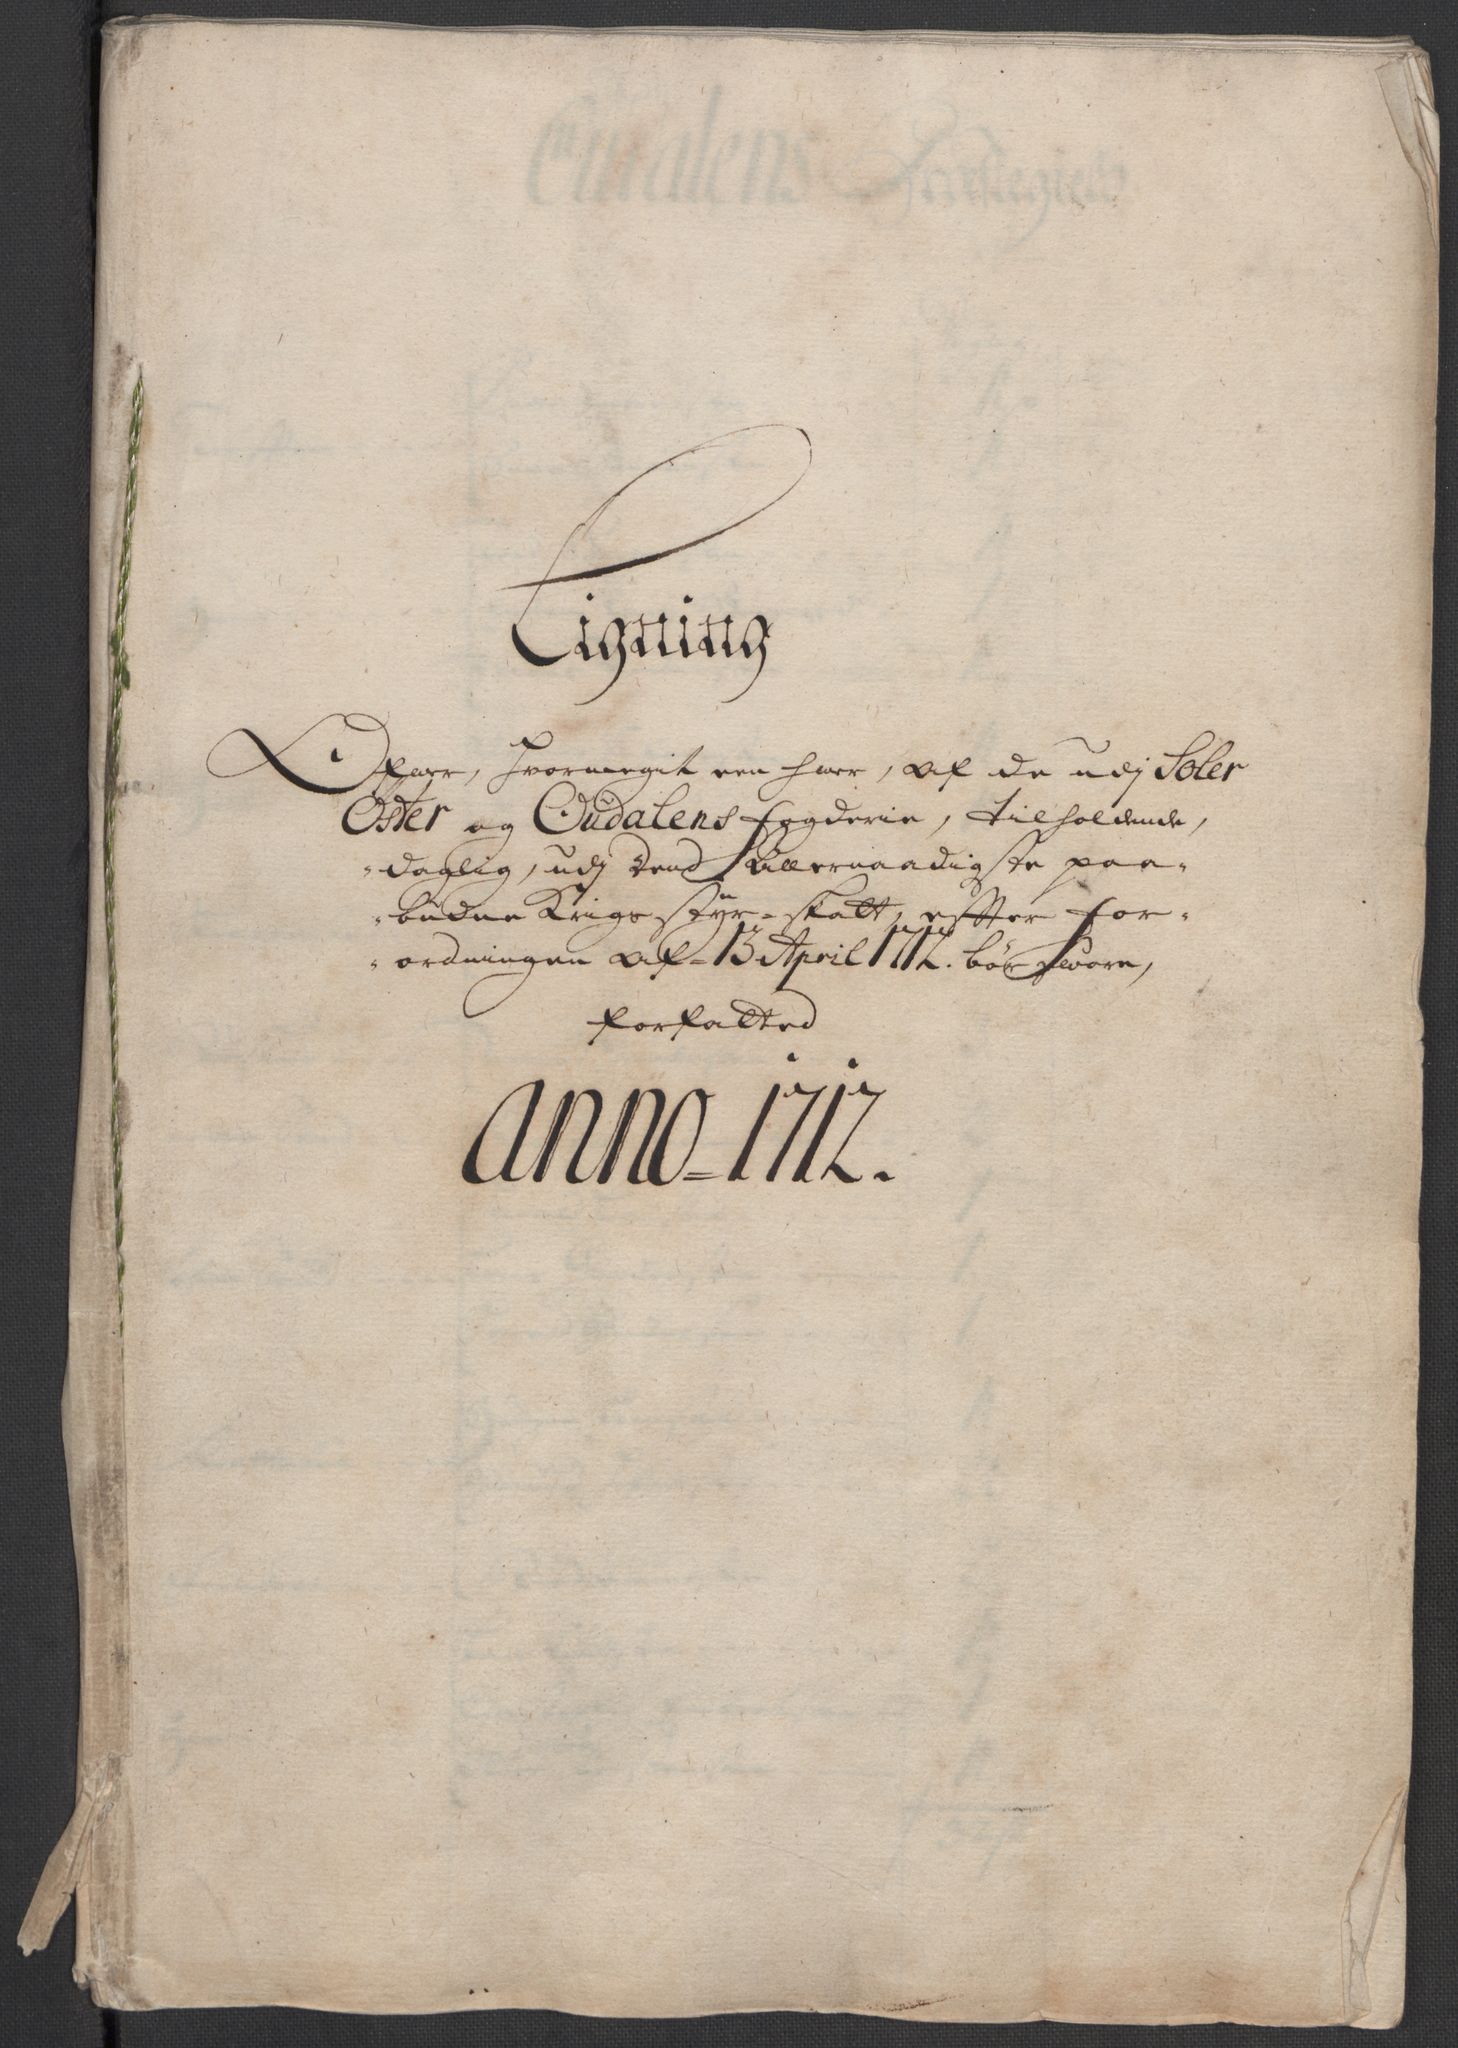 Ligning
Ofver, hvormegit een hver, af de udj Soler
Oster og Oudalens fogderie, tilholdende,
daglig, udj dend allernaadigste paa-
budne Krigs styr-skatt, effter for-
ordningen af 13 April 1712. bör svare,
forfatted
anno 1712.